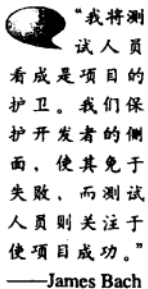 “我将测
试人员
看成是项目的
护卫。我们保
护开发者的侧
面，使其免于
失败，而测试
人员则关注于
使项目成功。”
——James Bach